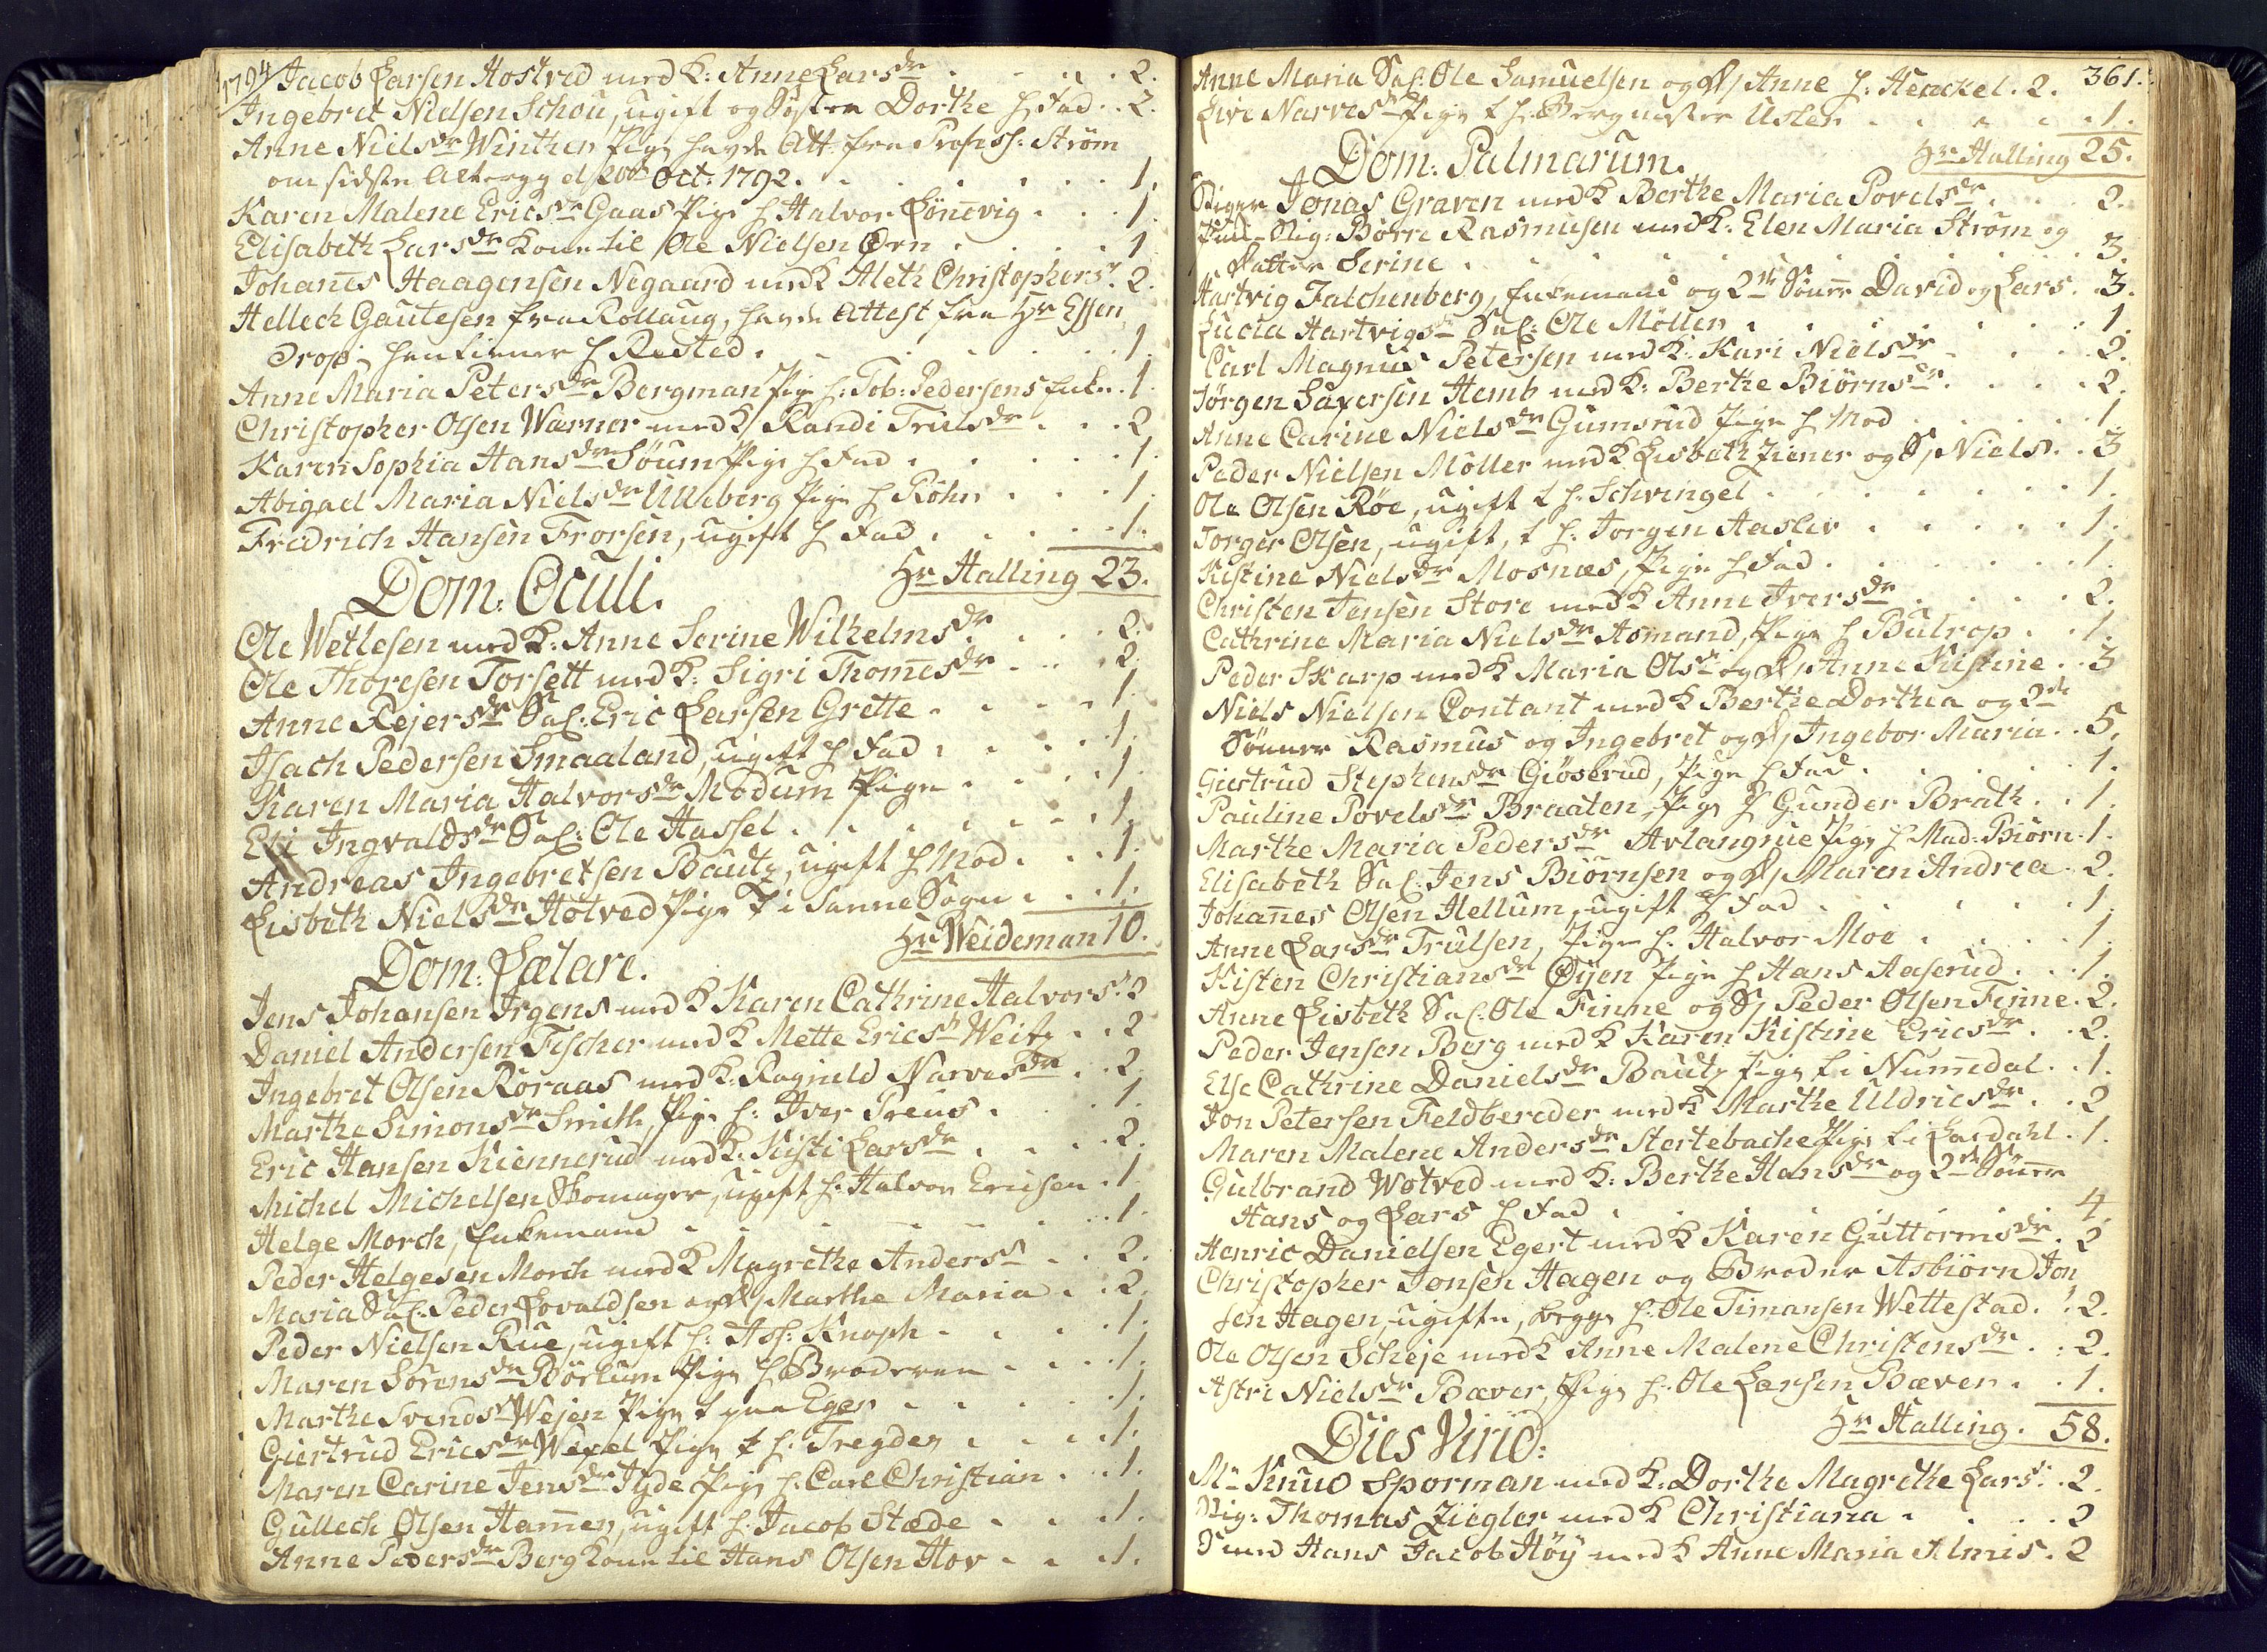 1794 Jacob Larsen Hostved med K: Anne Larsdr . . . 2.
Ingebret Nielsen Schou, ugift og Søster Dorthe h Fad . . 2.
Anne Nielsdr Winther Pige havde Att. fra Profess: Strøm
om sidste Alterg. d 20de Oct: 1792. . . . 1.
Karen Malene Ericsdr Gaas Pige h Halvor Lönnevig . . . 1.
Elisabeth Larsdr Kone til Ole Nielsen Ørn . . . 1
Johannes Haagensen Negaard med K Aleth Christophersdr. 2.
Hellech Gautesen fra Rollaug, havde Attest fra Hr Essen
Drop: tiener h Rasted . . . 1.
Anne Maria Petersdr Bergman Pige h: Tob: Pedersens Enke . 1.
Christopher Olsen Warner med K Randi Trulsdr . . . 2
Karen Sophia Hansdr Söum Pige h Fad . . . 1.
Abigael Maria Nielsdr Ulleberg Pige h Röhr . . . 1.
Fredrich Hansen Frorsen, ugift h Fad . . . 1.
Dom: Oculi. Hr Halling 23.
Ole Wetlesen med K: Anne Serine Wilhelmsdr . . . 2.
Ole Thoresen Torsett med K: Sigri Thomesdr . . . 2.
Anne Rejersdr Sal: Eric Larsen Grette . . . 1.
Isach Pedersen Smaaland, ugift h Fad . . . 1.
Karen Maria Halvorsdr Modum Pige . . . 1.
Eli Ingvaldsdr Sal: Ole Hassel . . . 1.
Andreas Ingebretsen Bautz, ugift h Mod . . . 1.
Lisbeth Nielsdr Hotved Pige t i Sanne Sogn . . . 1.
Dom: Lætare. Hr Weideman 10.
Jens Johansen Irgens med K Karen Cathrine Halvorsdr. 2
Daniel Andersen Fischer med K Mette Ericsdr Weitz . . 2
Ingebret Olsen Röraas med K: Ragnild Narvesdr . . 2.
Marthe Simonsdr Smith, Pige h: Iver Preus . . . 1.
Eric Hansen Kiennerud med K: Kisti Larsdr . . . 2.
Michel Michelsen Skomager, ugift h: Halvor Ericsen . 1
Helge Morch, Enkemand . . . 1.
Peder Helgesen Morch med K Magrethe Andersdr . . 2.
Maria Sal. Peder Lovaldsen og D/ Marthe Maria . . 2.
Peder Nielsen Rue, ugift h: Ass: Knoph . . . 1.
Maren Sörensdr Börlum Pige h Broderen . . . 1.
Marthe Svendsdr Wesen Pige t paa Eger . . . 1.
Giertrud Ericsdr Wexel Pige t h: Tregder . . . 1.
Maren Carine Jensdr Jyde Pige h: Carl Christian . . . 1.
Gullech Olsen Hammer, ugift h: Jacob Stæde . . . 1.
Anne Pedersdr Berg Kone til Hans Olsen Hov . . . 1.
Anne Maria Sal: Ole Samuelsen og D/ Anne h: Henckel . 2. 361.
Live Narvesdr Pige t h: Bergmester Usler . . . 1.
Dom: Palmarum. Hr Halling 25.
Stiger Jonas Graven med K Berthe Maria Povelsdr . . . 2.
Stig: Börre Rasmusen med K: Elen Maria Strøm og
Datter Serine . . . 3.
Hartvig Falchenberg, Enkemand og 2de Sönner David og Lars . 3.
Lucia Hartvigsdr Sal: Ole Möller . . . 1.
Carl Magnus Petersen med K: Kari Nielsdr . . . 2.
Jörgen Saxersen Hemb med K: Berthe Biörnsdr . . . 2.
Anne Carine Nielsdr Gumsrud Pige h Mod . . . 1.
Peder Nielsen Möller med K Lisbeth Ziener og S/ Niels . . 3
Ole Olsen Röe, ugift t h: Schvingel . . . 1.
Torger Olsen, ugift, t h: Jorgen Haslev . . . 1.
Kistine Nielsdr Mosnæs, Pige h Fad . . . 1.
Christen Jensen Store med K Anne Iversdr . . . 2.
Cathrine Maria Nielsdr Asmand, Pige h Bulrop . . 1.
Peder Skarp med K Maria Olsdr og D/ Anne Kistine . . 3
Niels Nielsen Contant med K Berthe Dorthea og 2de
Sönner Rasmus og Ingebret og D/ Ingebor Maria . . 5.
Giertrud Stephensdr Giöserud, Pige h Fad . . . 1.
Pauline Povelsdr Braaten, Pige h Gunder Brath . . 1.
Marthe Maria Pedersdr Arlangrue Pige h Mad: Biörn . 1.
Elisabeth Sal. Jens Biörnsen og D/ Maren Andrea . 2.
Johannes Olsen Hellum, ugift h Fad . . . 1.
Anne Larsdr Trulsen, Pige h: Halvor Moe . . . 1.
Kisten Christiansdr Öyen Pige h Hans Aaserud . . . 1.
Anne Lisbeth Sal. Ole Finne og S/ Peder Olsen Finne . 2.
Peder Jensen Berg med K Karen Kistine Ericsdr . . 2.
Else Cathrine Danielsdr Bautz Pige t i Nummedal . . 1.
Jon Petersen Feldbereder med K Marthe Uldricsdr . . 2
Maren Malene Andersdr Stortebache Pige t i Lardahl . 1.
Gulbrand Wotved med K: Berthe Hansdr og 2de Sönner
Hans og Lars h Fad . . . 4.
Henric Danielsen Egert med K Karen Guttormsdr . 2
Christopher Jonsen Hagen og Broder Asbiörn Jon
sen Hagen, ugifte, begge h: Ole Timansen Wettestad . . 2.
Ole Olsen Scheje med K Anne Malene Christensdr . . 2.
Astri Nielsdr Bæver, Pige h: Ole Larsen Bæver . . 1.
Dies Virid: Hr Halling . 58.
Mr Knud Sporman med K: Dorthe Magrethe Larsdr . . 2.
Stig: Thomas Ziegler med K Christiana . . . 2
Hans Jacob Höy med K Anne Maria Almis . 2